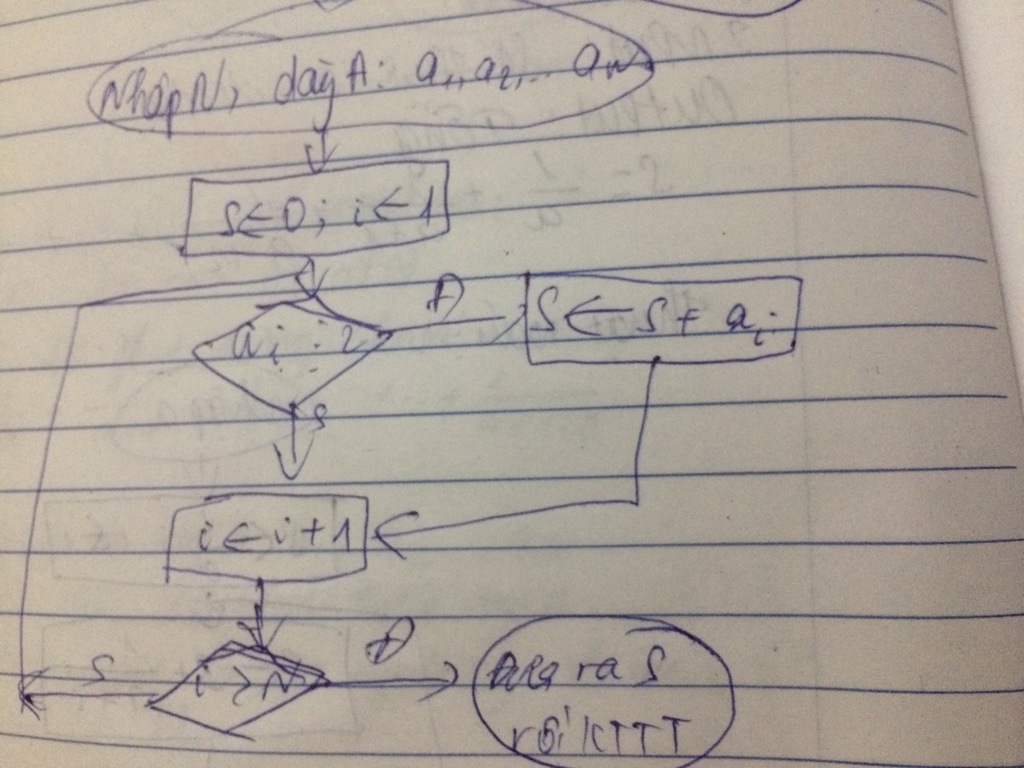 Nhập N, dãy A: a₁, a₂, ... aN
S ← 0; i ← 1
aᵢ ⋮ 2
Đ
S ← S + aᵢ
S
i ← i + 1
i > N
Đ
S
Đưa ra S
rồi KTTT